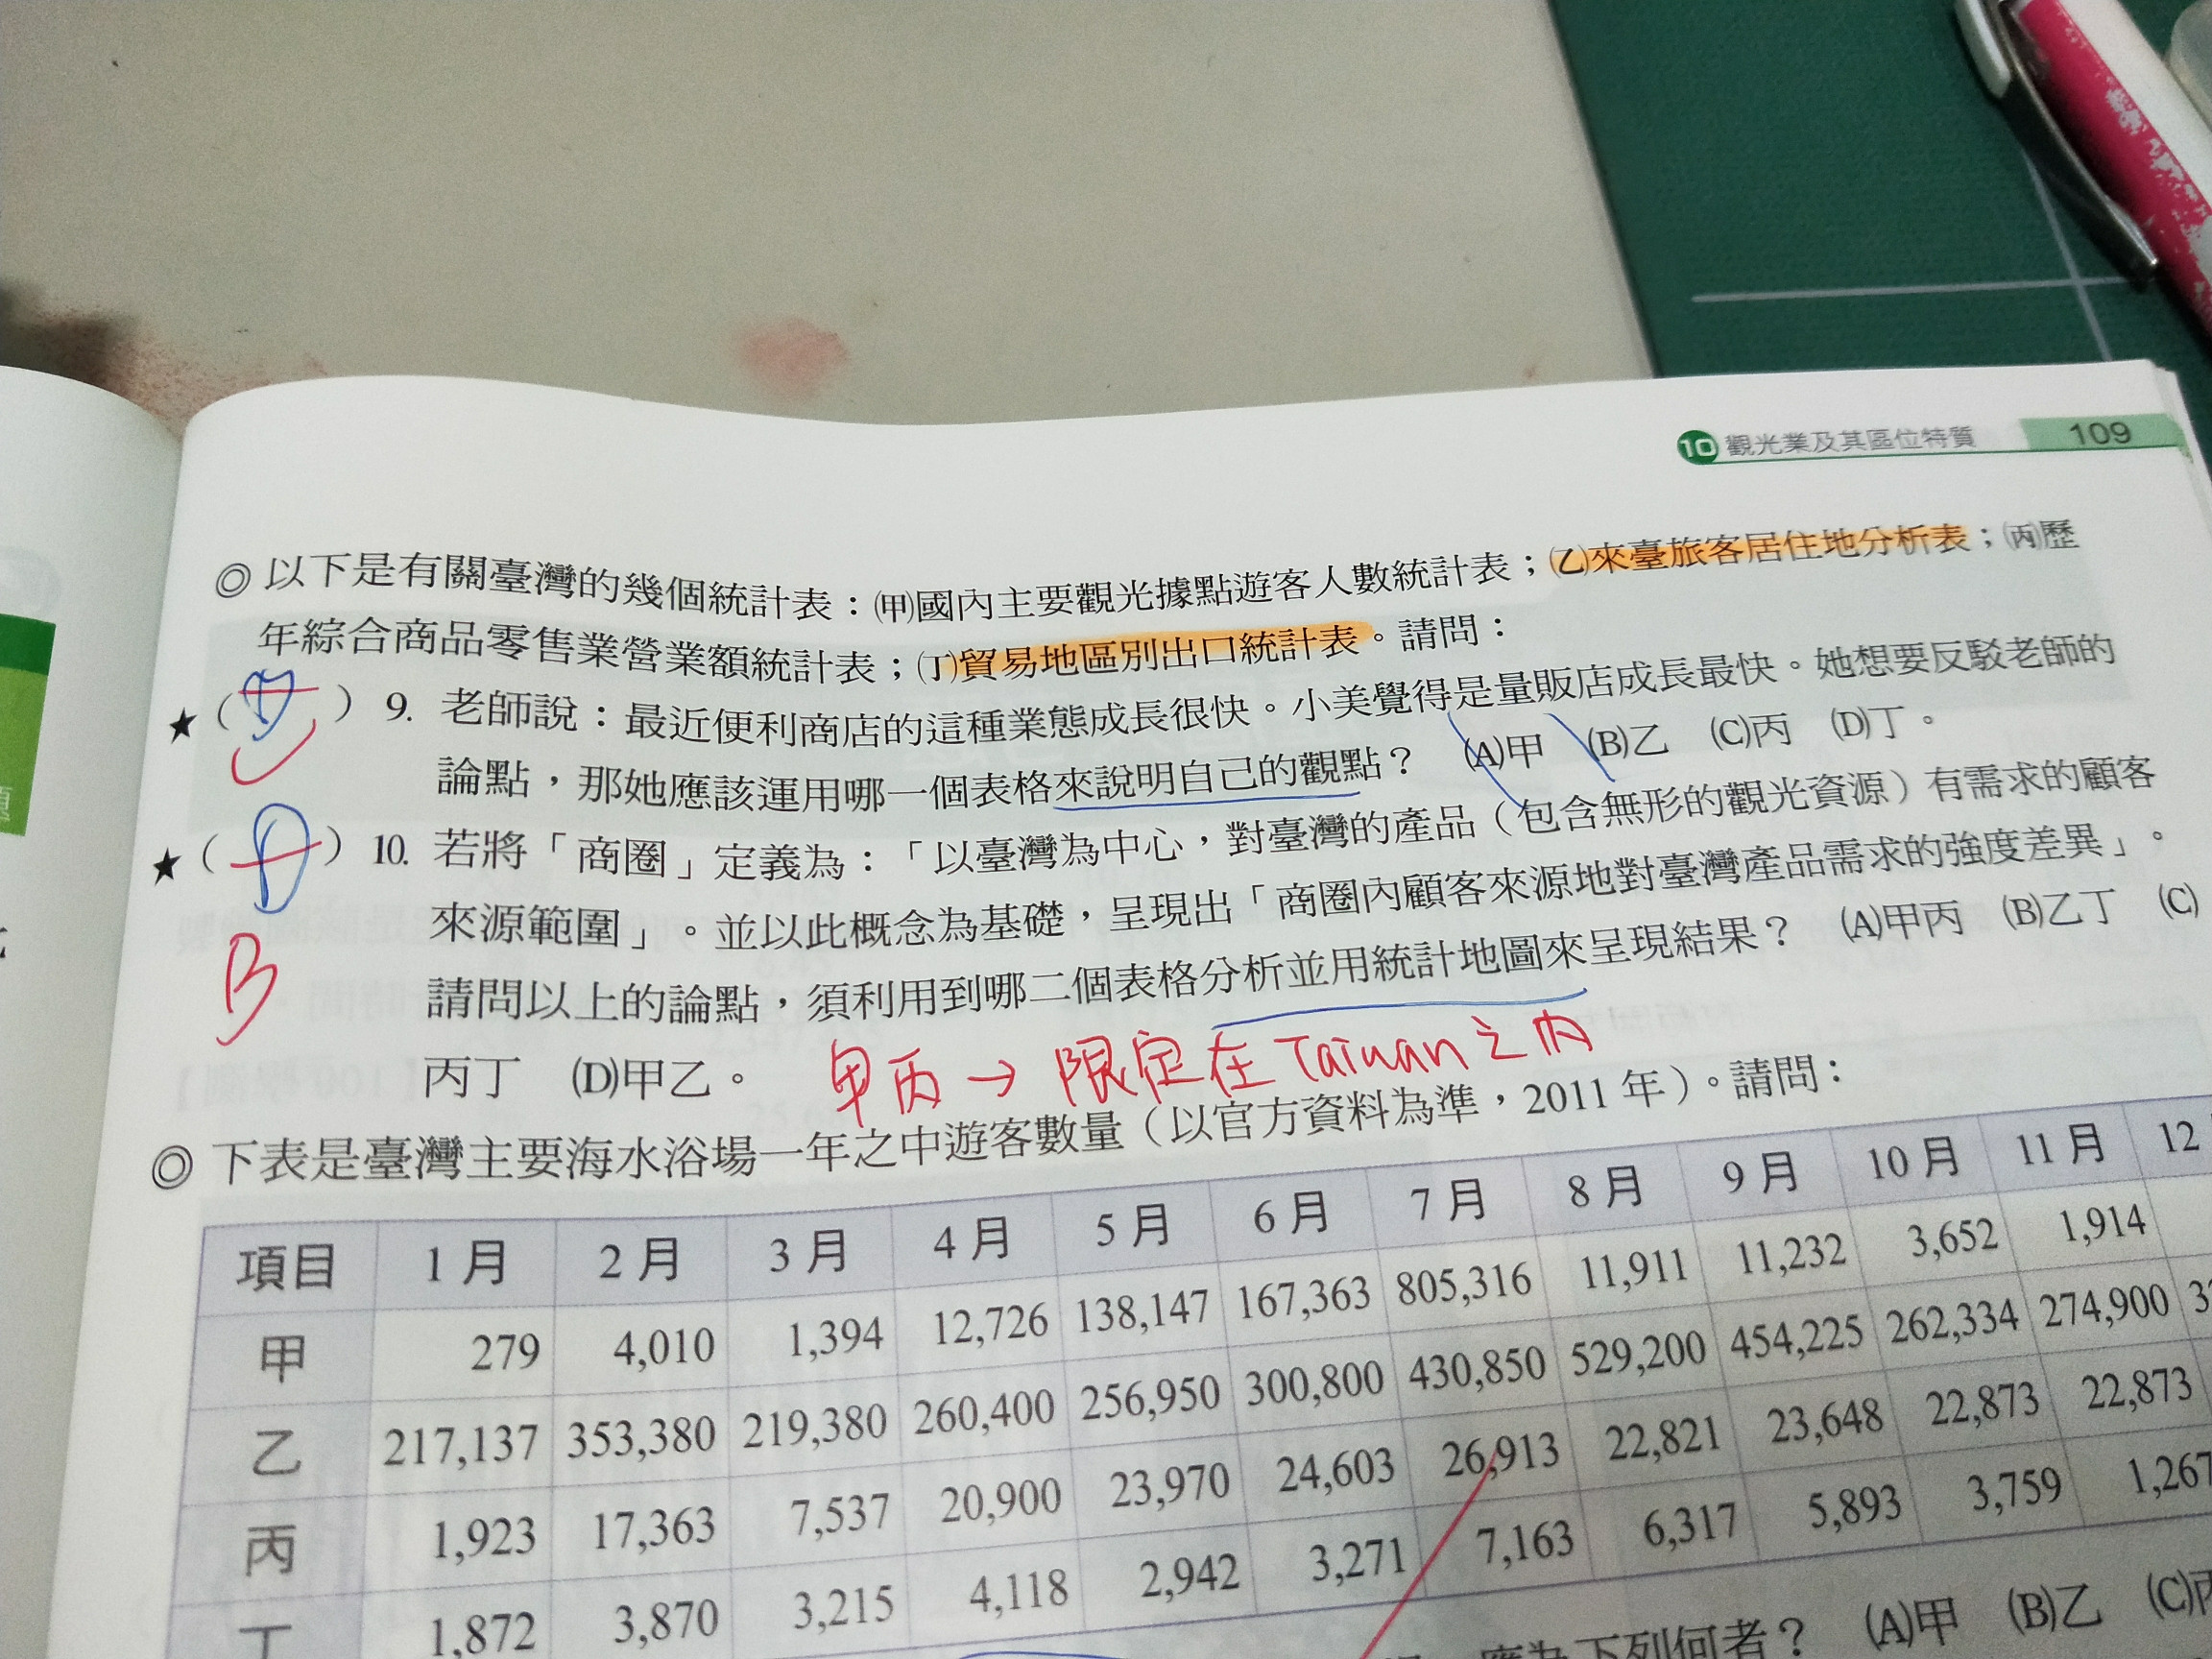 10 觀光業及其區位特質 109
◎以下是有關臺灣的幾個統計表：㈙國內主要觀光據點遊客人數統計表；㈚來臺旅客居住地分析表；㈛歷
年綜合商品零售業營業額統計表；㈜貿易地區別出口統計表。請問：
★（ ）9. 老師說：最近便利商店的這種業態成長很快。小美覺得是量販店成長最快。她想要反駁老師的
論點，那她應該運用哪一個表格來說明自己的觀點？ (A)甲 (B)乙 (C)丙 (D)丁。
★（ D ）10. 若將「商圈」定義為：「以臺灣為中心，對臺灣的產品（包含無形的觀光資源）有需求的顧客
來源範圍」。並以此概念為基礎，呈現出「商圈內顧客來源地對臺灣產品需求的強度差異」。
B
請問以上的論點，須利用到哪二個表格分析並用統計地圖來呈現結果？ (A)甲丙 (B)乙丁 (C)
丙丁 (D)甲乙。
甲丙→限定在Taiwan之內
◎下表是臺灣主要海水浴場一年之中遊客數量（以官方資料為準，2011年）。請問：
項目 1月 2月 3月 4月 5月 6月 7月 8月 9月 10月 11月 12
甲 279 4,010 1,394 12,726 138,147 167,363 805,316 11,911 11,232 3,652 1,914
乙 217,137 353,380 219,380 260,400 256,950 300,800 430,850 529,200 454,225 262,334 274,900
丙 1,923 17,363 7,537 20,900 23,970 24,603 26,913 22,821 23,648 22,873 22,873
丁 1,872 3,870 3,215 4,118 2,942 3,271 7,163 6,317 5,893 3,759 1,267
應為下列何者？ (A)甲 (B)乙 (C)丙